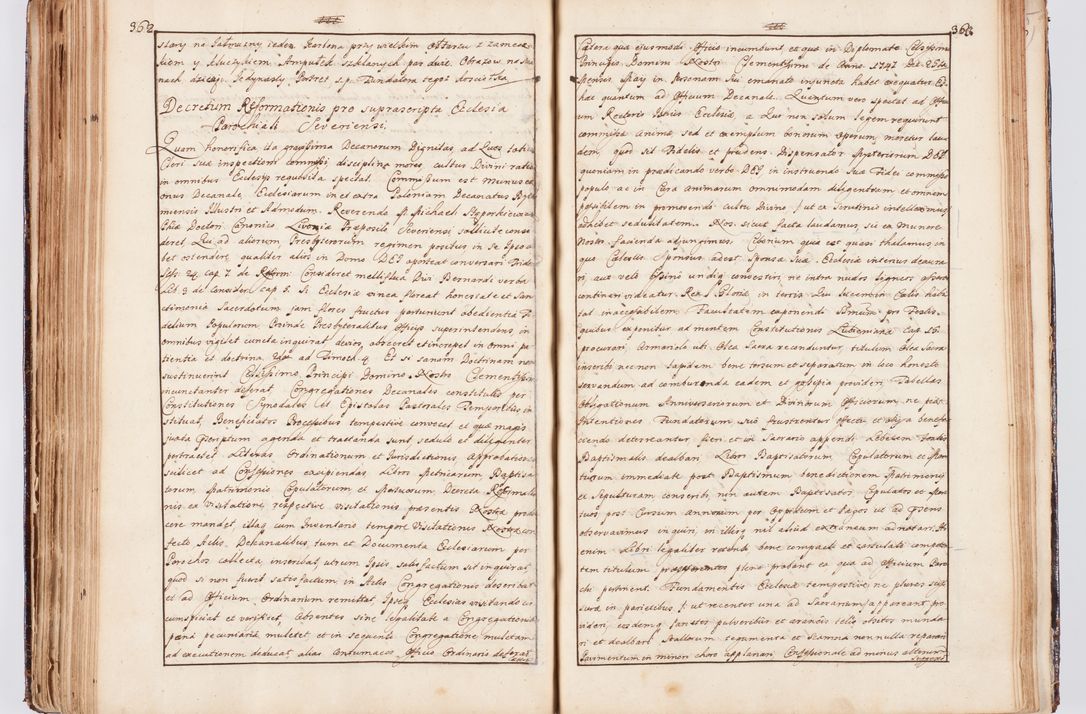 362
stary na Jałmużny jeden Karbona przy wielkim Ołtarzu z zamecz-
kiem y kluczykiem Ampułek szklanych par dwie. Obrazow na scia
nach dziesięć Jedynasty Portret s.p. Fundatora tegoż
Decretum Reformationis pro suprascripta Ecclesia
Parochiali Severiensi.
Quam honorifica, ita gravissima Decanorum Dignitas, ad Quos totius
Cleri sua inspectioni commissi disciplina, mores, cultus Divini ratio
in omnibus Ecclesijs requisita spectat. Commissum est munus et
onus Decanale Ecclesiarum in et extra Poloniam Decanatus
miensis Illustri et Admodum Reverendo D. Michaeli
Phiae Doctori Canonico Livoniae Praeposito Severiensi sollicite consi
deret Qui ad aliorum Presbyterorum regimen positus in se ipso de
bet ostendere, qualiter alios in Domo DEI oporteat conversari. Trid:
Sess: 24. cap. 7. de Reform: Consideret melliflua Divi Bernardi verba
Lib 3 de Consider: cap 5. Si Ecclesiae vinea floreat honestate et San
ctimonia Sacerdotum jam flores fructus parturiunt obedientia Fi
delium Populorum. Proinde Presbyteralibus Officijs superintendens in
omnibus vigilet cuncta inquirat devios, obsecret et increpet in omni pa
tientia et doctrina ad Timoth 4. Et si sanam Doctrinam non
sustinuerint Celsissimo Principi Domino Nostro Clementissimo
incunctanter deferat. Congregationes Decanales constitutis per
Constitutiones Synodales et Epistolas Pastorales Temporibus in
stituat, Beneficiatos Processibus tempestive convocet et qua magis
juxta Praescriptum agenda et tractanda sunt sedulo et diligenter
pertractet. Literas Ordinationum et Jurisdictionis approbationis
scilicet ad Confessiones excipiendas Libros Metricarum, Baptisa
torum, Matrimonio Copulatorum et Mortuorum Decreta Reformatio
nis ex Visitatione respective visitationis praesentis Nostrae produ
cere mandet, illaq cum Inventario tempore Visitationis Nostrae con
fecto Actis Dekanalibus, tum et Documenta Ecclesiarum per
Parochos collecta inscribat, utrum Ipsis satisfactum sit inquirat,
quod si non fuerit satisfactum in Actis Congregationis describat
et ad Officium Ordinarium remittat, Ipsasq Ecclesias visitando cir
cumspiciat et verificet, Absentes sine legalitate a Congregatione
poena pecuniaria mulctet et in sequenti Congregatione mulctam
ad executionem deducat, alias contumaces Officio Ordinario deferat
Caetera
363
Caetera qua ejusmodi Officio incumbunt et qua in Diplomate Celsissimi
Principis Domini Nostri Clementissimi de Anno 1747 Die 25ta
Mensis Maij in Personam Sui emanato injuncta habet exequatur. Et
haec quantum ad Officium Decanale. Quantum vero spectat ad Offici
um Rectoris hujus Ecclesiae, a Quo non solum Legem requirunt
commissae animae sed et exemplum bonorum operum, meretur lau
dem, quod sit Fidelis et prudens Dispensator Mysteriorum DEI
quoniam in praedicando verbo DEI, in instruendo Suae Fidei commisso
populo ac in Cura animarum omnimodam diligentiam et omnem
possibilem in promovendo cultu Divino /: ut ex Scrutinio intelleximus
adhibet sedulitatem. Nos sicut facta laudamus, sic ex Munere
Nostro facienda adjungimus. Ciborium quia est quasi thalamus in
quo Caelestis Sponsus adest Sponsae suae Ecclesiae interius deaura
ri aut velo undiq convestiri, ne intra nudos
contineri videatur Rex Gloriae in terris Qui lucem in Caelis habi
tat inaccessibilem. Facultatem exponendi pro Festis,
quibus exponitur ad mentem Constitutionis Lubienianae Cap 16.
procurari. Armariola ubi Olea Sacra reconduntur, titulum Olea Sacra
inscribi nec non lapidem bene tersum et separatum in loco honesto
servandum ad comburenda eadem et gossipia provideri. Tabellas
Obligationum Anniversariorum et Divinorum Officiorum, ne pia
Intentiones Fundatorum suo frustrentur effectu et alij a benefa
ciendo deterreantur fieri et in Sacrario appendi. Labellum Fontis
Baptismalis dealbari. Libri Baptisatorum Copulatorum et Mor
tuorum immediate post Baptismum benedictionem Matrimonij
et Sepulturam conscribi, non autem Baptisatos, Copulatos et Mor
tuos post Cursum Annorum per Oppidum et Pagos ut ad praesens
observavimus inquiri, in illisq nil aliud extraneum adnotari. Hi
enim Libri legaliter bene compacti et cartulati compe
tem titulum plene probant ea qua ad Officium Paro
chi pertinent. Fundamentis Ecclesiae tempestive ne plures scis
surae in parietibus /: ut recenter una ad Sacrarium / appareant, pro
videri, eosdemq parietes pulveribus et araneis telis obsitos munda
ri et dealbari. Stallorum tegumenta et scamna non nulla reparari
Pavimentum in minori choro applanari, Confessionale ad minus alterum